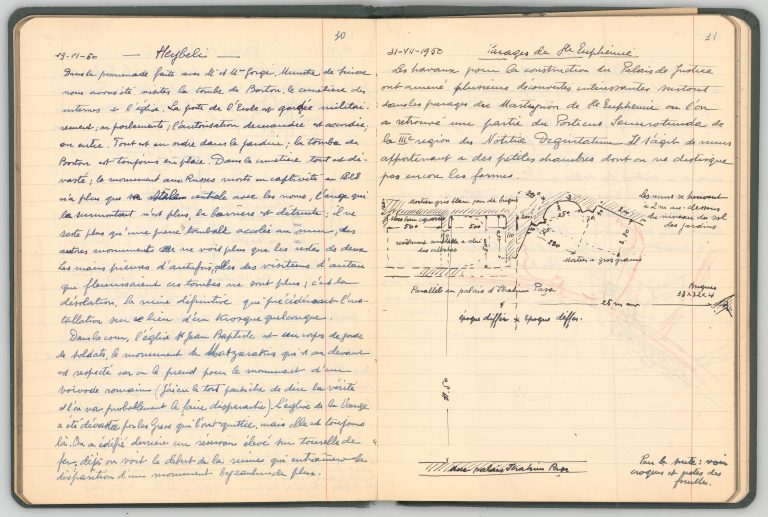 30
19-VI-50 — Heybeli —
Dans la promenade faite avec Mr et Mme Gorge, Ministre de Suisse
nous avons été visiter la tombe de Barton, le cimetière des
internes et l'église. La porte de l'Ecole est gardée militai-
rement, on parlemente; l'autorisation demandée est accordée,
on entre. Tout est en ordre dans le jardin; la tombe de
Barton est toujours en place. Dans le cimetière tout est dé-
vasté; le monument aux Russes morts en captivité en 1828
n'a plus que sa stèle centrale avec les noms, l'ange qui
la surmontait n'est plus, la barrière est détruite; il ne
reste plus qu'une pierre tombale accolée au mur, des
autres monuments on ne voit plus que les restes de deux
Les mains pieuses d'autrefois, celles des visiteurs d'antan
qui fleurissaient ces tombes ne sont plus; c'est la
désolation, la ruine définitive qui précédera l'ins-
tallation sur ce lieu d'un kiosque quelconque.
Dans la cour, l'église St Jean Baptiste est au corps de garde
de soldats, le monument de Matzarakis qui est au devant
est respecté car on le prend pour le monument d'un
voivode romain (J'ai eu le tort peut-être de dire la vérité
et l'on va probablement le faire disparaître). L'église de la Vierge
a été dévastée par les Grecs qui l'ont quittée, mais elle est toujours
là. On a édifié derrière un réservoir élevé sur tourelle de
fer, déjà on voit le début de la ruine qui entraînera la
disparition d'un monument byzantin de plus.
31
31-VII-1950 Parages de Ste Euphémie
Les travaux pour la construction du Palais de Justice
ont amené plusieurs découvertes intéressantes surtout
dans les parages du Martyrion de Ste Euphémie où l'on
a retrouvé une partie du Porticus Semirotunda de
la IIIe région des Notitia Dignitatum. Il s'agit de murs
appartenant à des petites chambres dont on ne distingue
pas encore les formes.
Mortier gris blanc peu de brique
Les murs se trouvent
à 2m au-dessus
du niveau du sol
des jardins
500
500
250
200
Mortier à gros grains
Briques
33×32×4
Parallèle au palais d'Ibrahim Paşa
25 m env
époque differ × Epoque differ.
Mur Palais Ibrahim Paşa
Pour la suite: voir
croquis et notes des
fouilles.